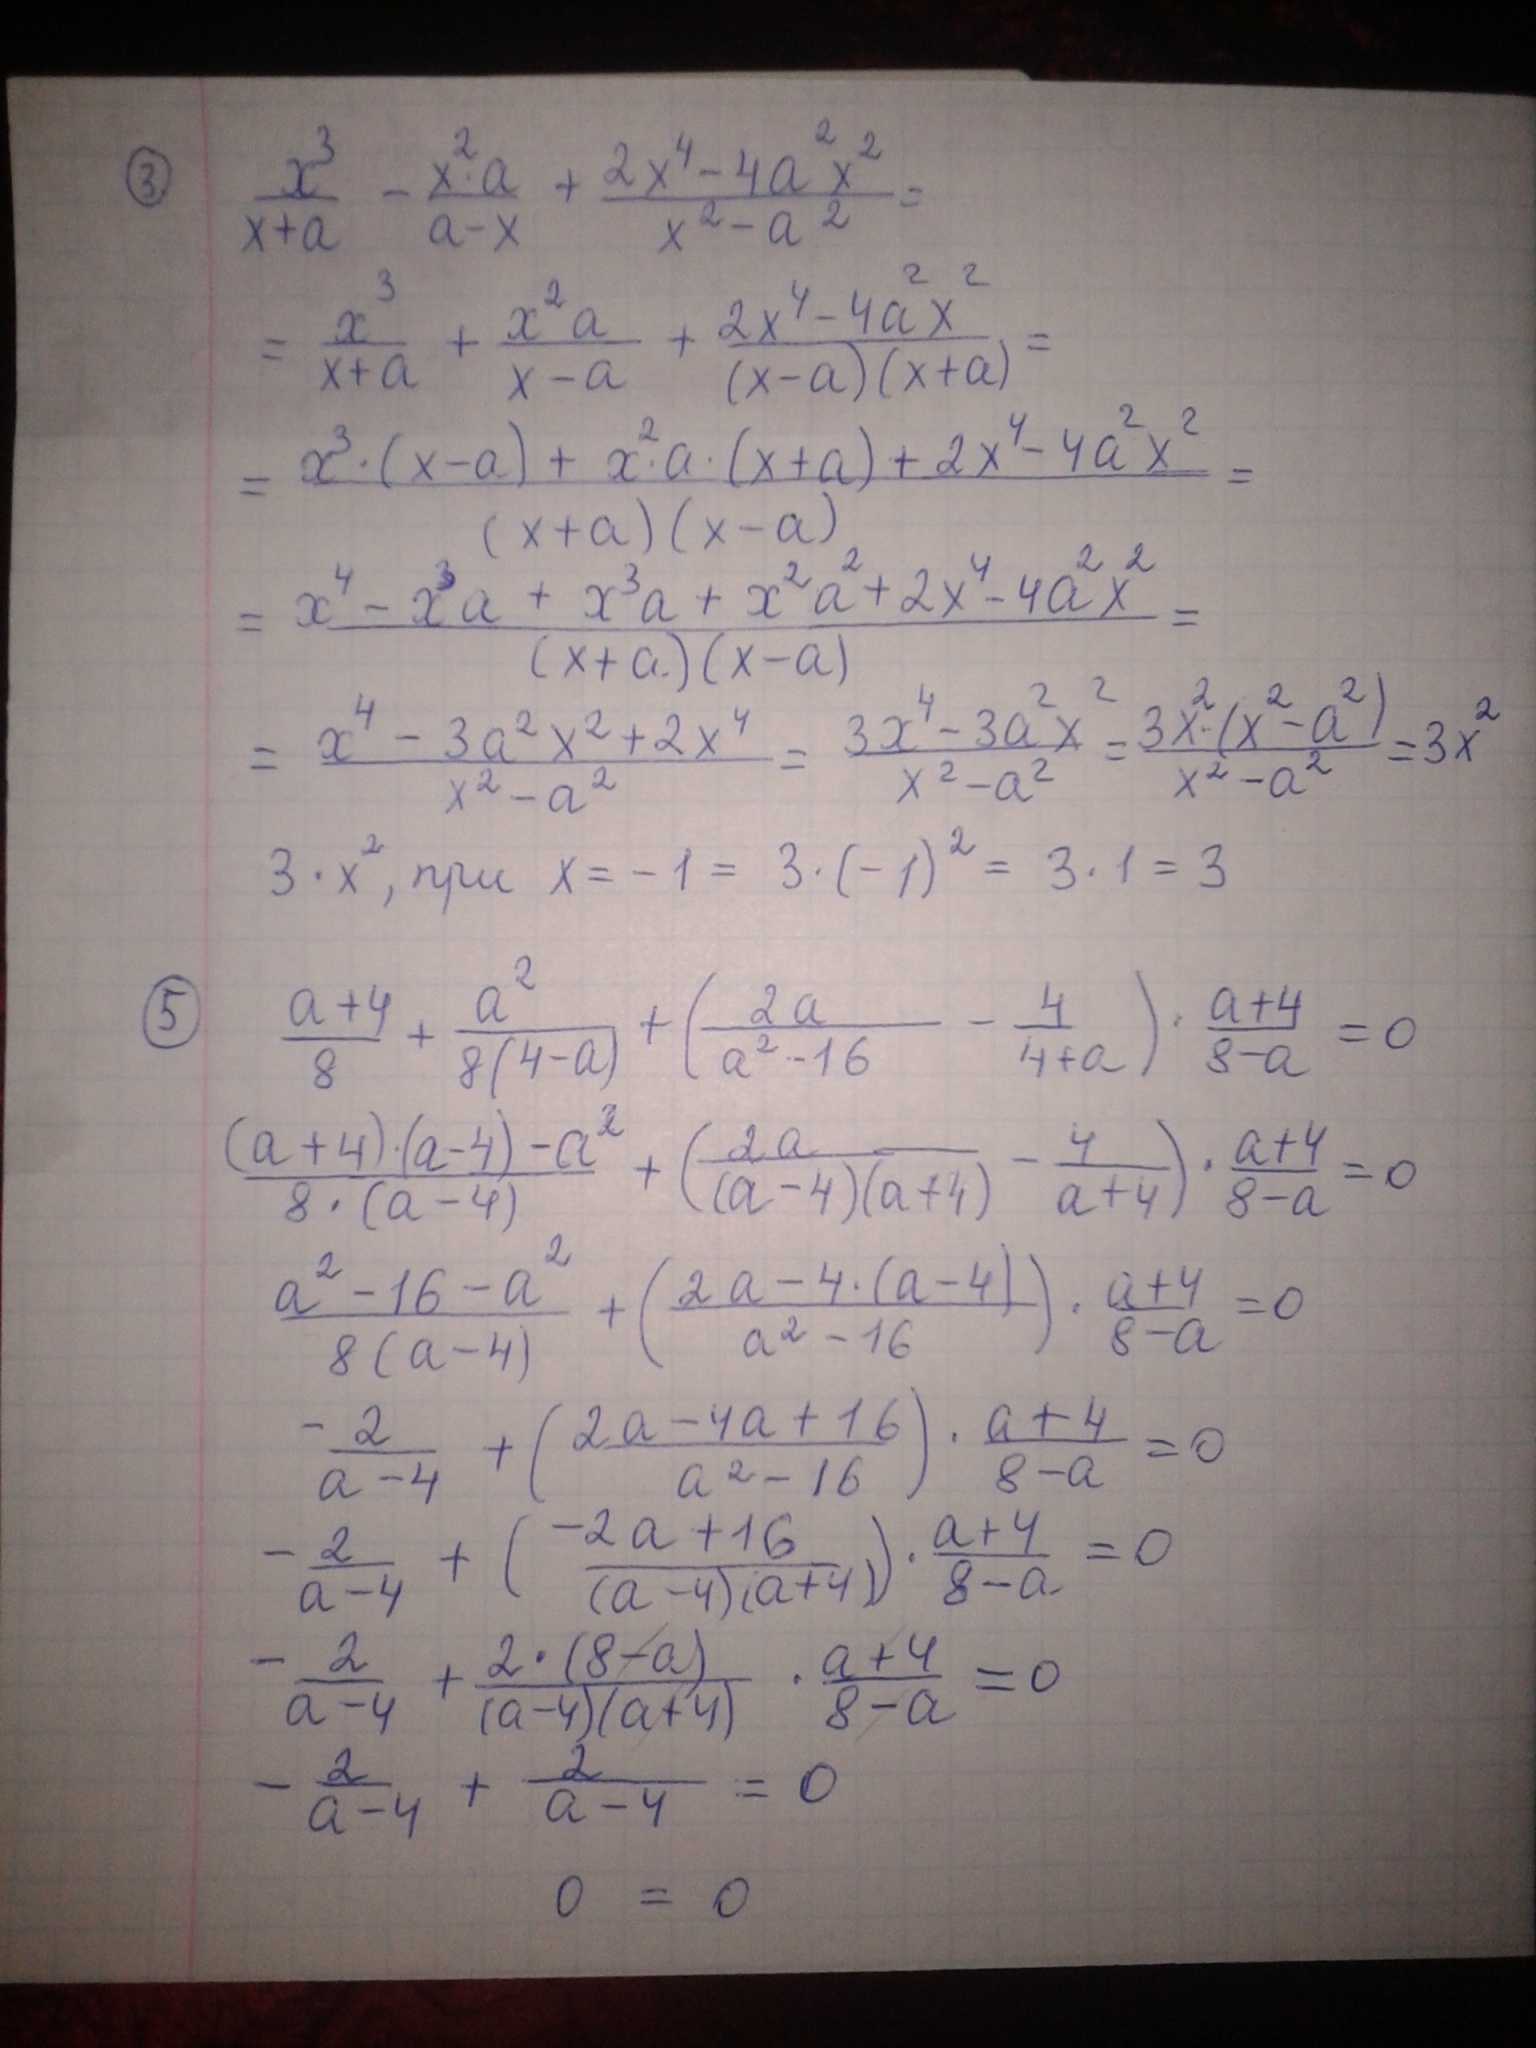 ③ x³/(x+a) - x²·a/(a-x) + (2x⁴-4a²x²)/(x²-a²) =
= x³/(x+a) + x²a/(x-a) + (2x⁴-4a²x²)/((x-a)(x+a)) =
= (x³·(x-a) + x²·a·(x+a) + 2x⁴-4a²x²)/((x+a)(x-a)) =
= (x⁴ - x³a + x³a + x²a² + 2x⁴-4a²x²)/((x+a)(x-a)) =
= (x⁴ - 3a²x² + 2x⁴)/(x²-a²) = (3x⁴-3a²x²)/(x²-a²) = 3x²·(x²-a²)/(x²-a²) = 3x²
3·x², при x = -1 = 3·(-1)² = 3·1 = 3
⑤ (a+4)/8 + a²/(8(4-a)) + (2a/(a²-16) - 4/(4+a)) · (a+4)/(8-a) = 0
((a+4)·(a-4)-a²)/(8·(a-4)) + (2a/((a-4)(a+4)) - 4/(a+4)) · (a+4)/(8-a) = 0
(a²-16-a²)/(8(a-4)) + ((2a-4·(a-4))/(a²-16)) · (a+4)/(8-a) = 0
-2/(a-4) + ((2a-4a+16)/(a²-16)) · (a+4)/(8-a) = 0
-2/(a-4) + ((-2a+16)/((a-4)(a+4))) · (a+4)/(8-a) = 0
-2/(a-4) + 2·(8-a)/((a-4)(a+4)) · (a+4)/(8-a) = 0
-2/(a-4) + 2/(a-4) = 0
0 = 0